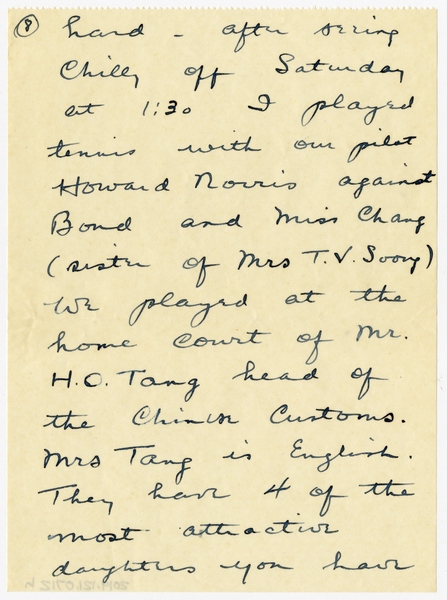 8
hard - after seeing
Chilly off Saturday
at 1:30 I played
tennis with our pilot
Howard Norris against
Bond and Miss Chang
(sister of Mrs T.V. Soong)
We played at the
home court of Mr.
H.O. Tang head of
the Chinese Customs.
Mrs Tang is English.
They have 4 of the
most attractive
daughters you have
2014.121.0712 h